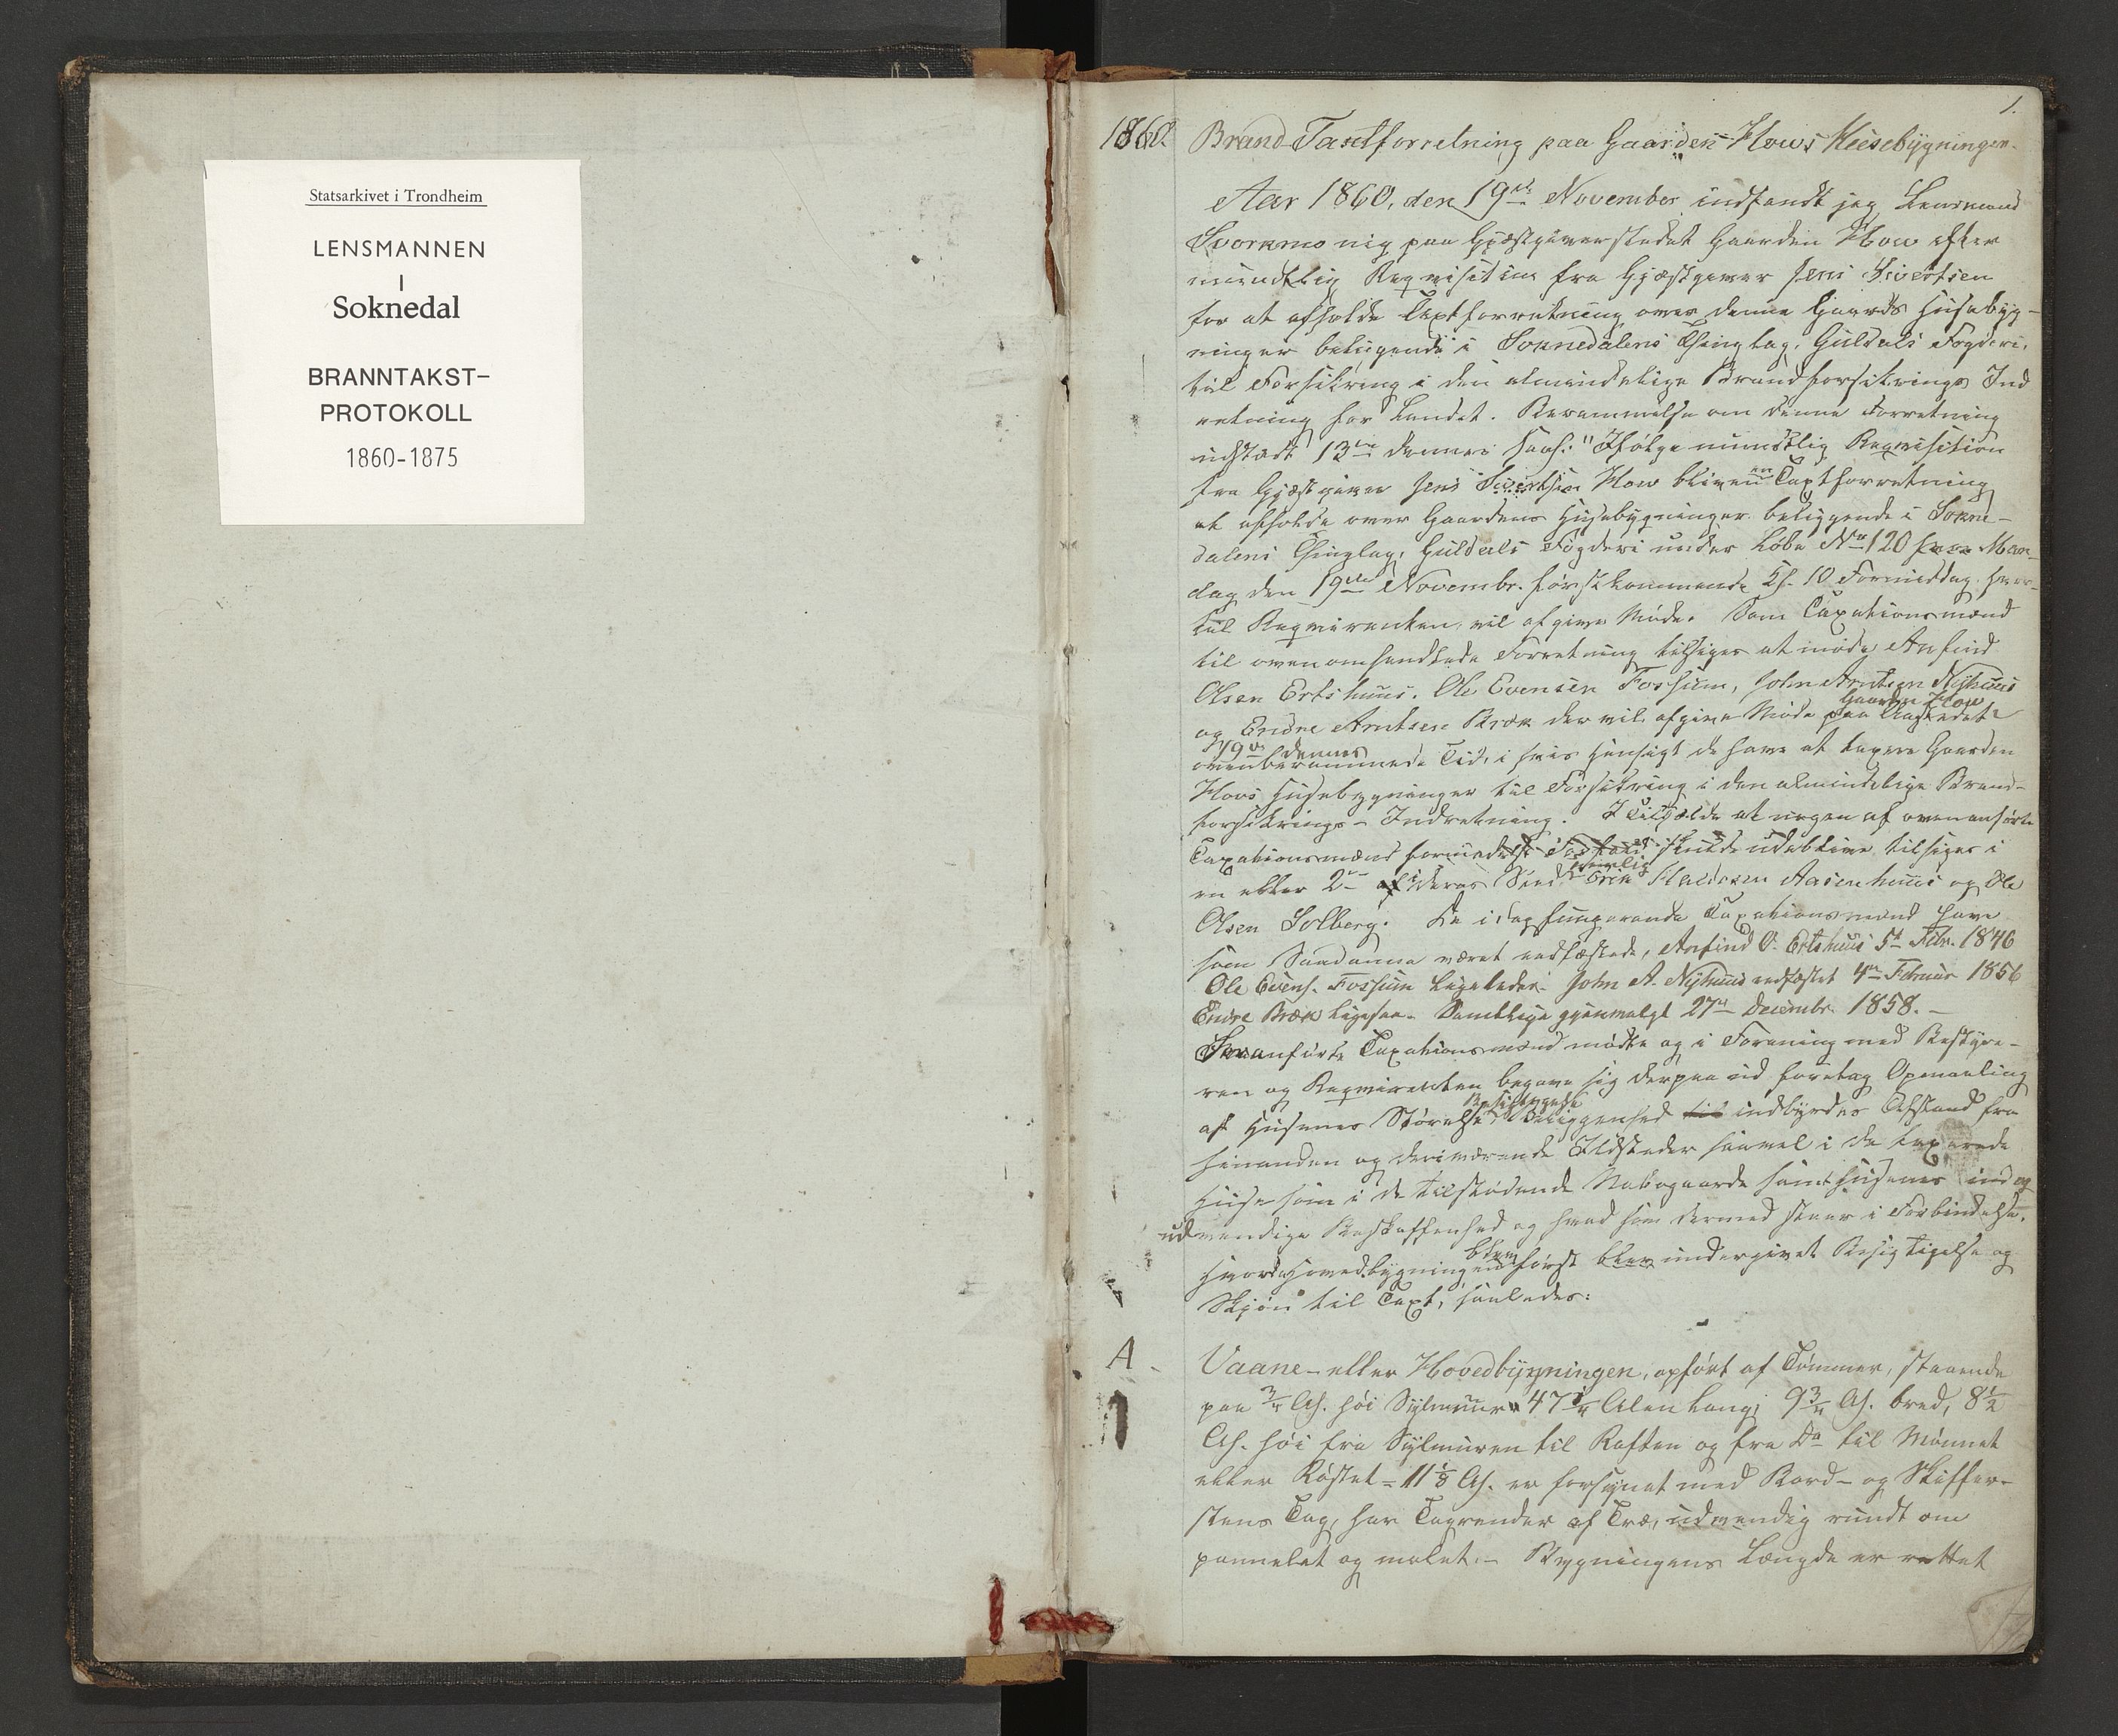 Statsarkivet i Trondheim
LENSMANNEN
I
Soknedal
BRANNTAKST-
PROTOKOLL
1860-1875
1.
1860. Brand-Taxtforretning paa Gaarden Hows Huusebygninger.
Aar 1860, den 19de November indfandt jeg Lensmand
Svorkmo mig paa Gjæstgiverstedet Gaarden How efter
mundtlig Reqvisition fra Gjæstgiver Jens Sivertsen
for at afholde Taxtforretning over denne Gaards Husebyg-
ninger beliggende i Soknedalens Thinglag, Guldals Fogderi,
til Forsikring i den almindelige Brandforsikrings Ind
retning for Landet. Berammelse om denne Forretning
udstædt 13de dennes saal: "Ifølge mundtlig Reqvisition
fra Gjæstgiver Jens Sivertsen How bliver en Taxtforretning
at afholde over Gaardens Husebygninger beliggende i Sokne-
dalens Thinglag, Guldals Fogderi under Løbe No 120 Man-
dag den 19de Novembr. førstkommende Kl. 10 Formiddag, hvor-
til Reqvirenten vil afgive Møde. Som Taxationsmænd
til ovenomhandlede Forretning tilsiges at møde Arfind
Olsen Ertshuus, Ole Evensen Fossum, John Arntsen Nyhuus
og Endre Arntsen Bræk der vil afgive Møde paa Gaarden How Aastedet
19de dennes
ovenberammede Tid, i hvis Hensigt de have at taxere Gaarden
Hovs Husebygninger til Forsikring i den almindelige Brand-
forsikrings-Indretning. I Tilfælde at nogen af ovenanførte
Taxationsmænd formedelst Forfald skulde udeblive tilsiges i
en eller 2de af deres Sted nemlig Erik Aasenhuus og Ole
Olsen Solberg. De i dag fungerende Taxationsmænd have
som saadanne været edfæstede, Arfind O. Ertshuus 5t Febr. 1846
Ole Evens. Fossum ligeledes. John A. Nyhuus edfæstet 4de Februar 1856
Endre Bræk ligesaa. Samtlige gjenvalgt 27de Decembr. 1858.-
Ovenanførte Taxationsmænd mødte og i Forening med Bestyre-
ren og Reqvirenten begave sig derpaa ud foretog Opmaaling
af Husenes Størelse, Beskaffenhed Beliggenhed til indbyrdes Afstand fra
hinanden og deri værende Ildsteder saavel i de taxerede
Huse som i de tilstødende Nabogaarde samt Husenes ind og
udvendige Beskaffenhed og hvad som dermed staar i Forbindelse.
Hvorda Hovedbygningen blev først blev undergivet Besigtigelse og
Skjøn til Taxt, saaledes:
A. Vaane- eller Hovedbygningen, opført af Tømmer, staaende
paa 3/4 Al. høi Sylmuur 47 1/4 Alen lang, 9 3/4 Al. bred, 8 1/2
Al. høi fra Sylmuren til Raften og fra Do til Mønnet
eller Røstet - 11 1/8 Al. er forsynet med Bord- og Skiffer-
stens Tag, har Tagrender af Træ, udvendig rundt om
pannelet og malet.- Bygningens Længde er rettet